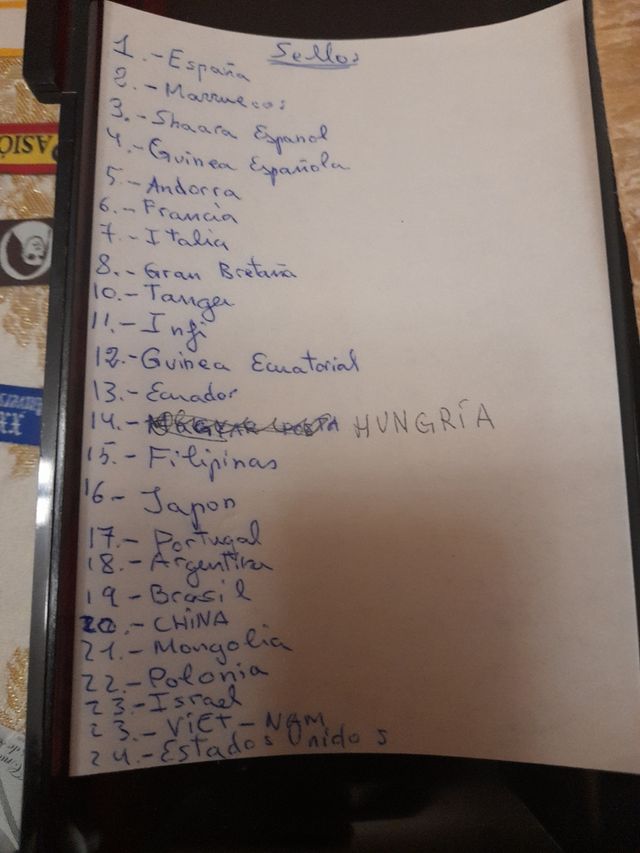 Sellos
1.- España
2.- Marruecos
3.- Shaara Español
4.- Guinea Española
5.- Andorra
6.- Francia
7.- Italia
8.- Gran Bretaña
10.- Tanger
11.- Infi
12.- Guinea Ecuatorial
13.- Ecuador
14.- HUNGRÍA
15.- Filipinas
16- Japon
17.- Portugal
18.- Argentina
19- Brasil
20.- CHiNA
21.- Mongolia
22.- Polonia
23.- Israel
23.- ViET-NAM
24.- Estados Unidos
PASIÓ
XX